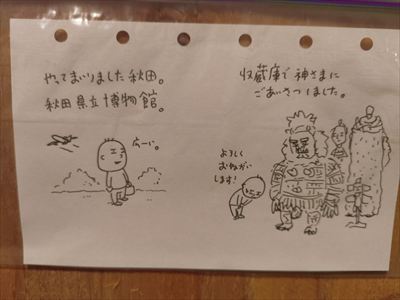 やってまいりました秋田。
秋田県立博物館。
広ーい。
収蔵庫で神さまに
ごあいさつしました。
よろしく
おねがい
します!